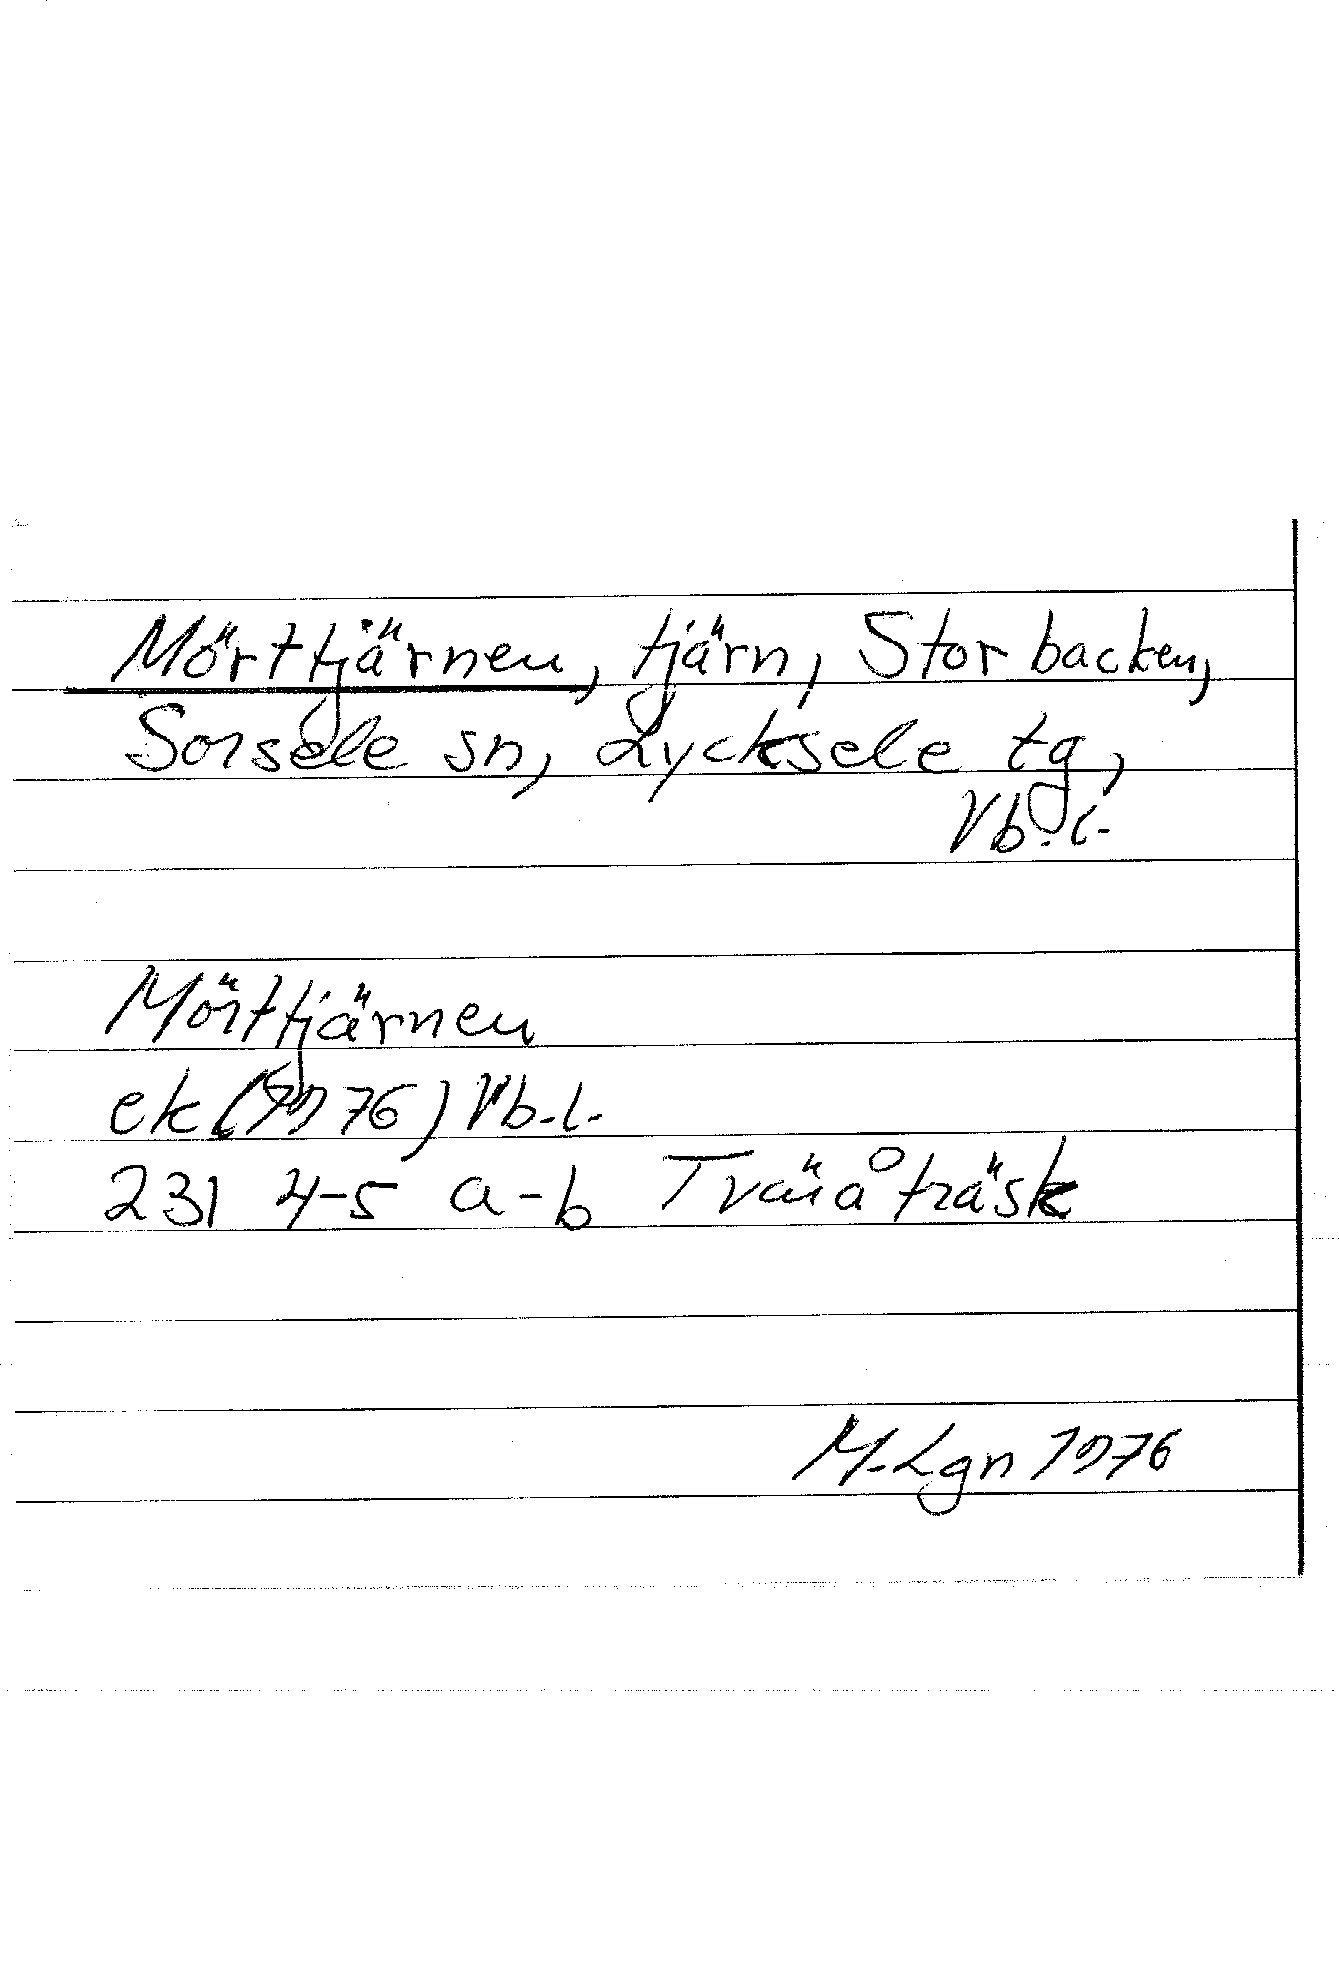 Mörttjärnen, tjärn, Storbacken,
Sorsele sn, Lycksele tg,
Vb.l.
Mörttjärnen
ek (1976) Vb.l.
231 4-5 a-b Tväråträsk
M.Lgn 1976